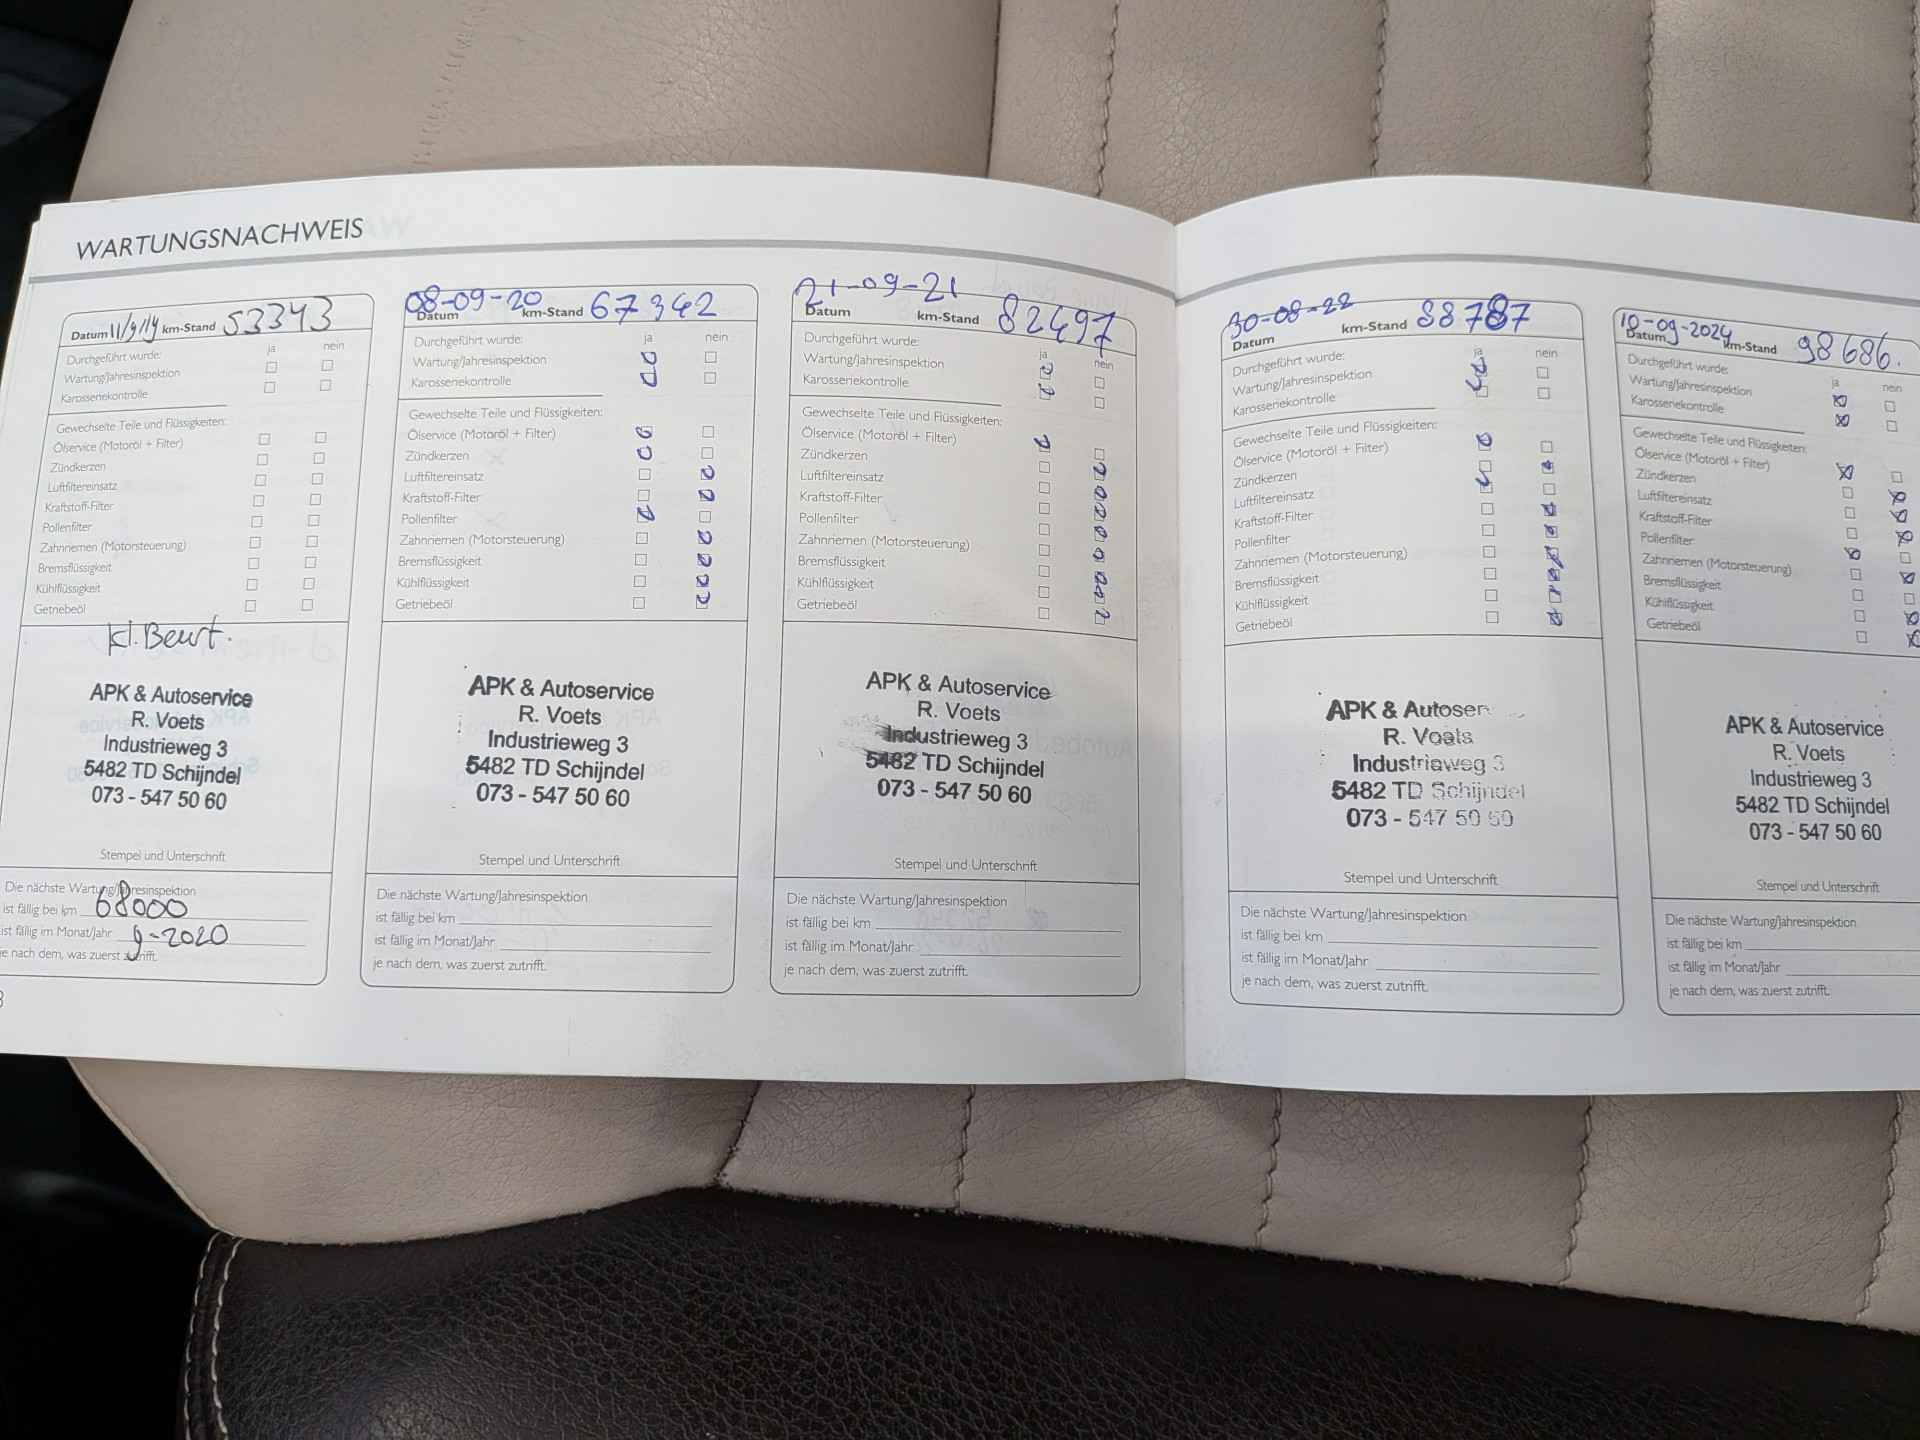 WARTUNGSNACHWEIS
Datum 11/9/19 km-Stand 53343
Durchgeführt wurde: ja nein
Wartung/Jahresinspektion
Karosseriekontrolle
Gewechselte Teile und Flüssigkeiten:
Ölservice (Motoröl + Filter)
Zündkerzen
Luftfiltereinsatz
Kraftstoff-Filter
Pollenfilter
Zahnriemen (Motorsteuerung)
Bremsflüssigkeit
Kühlflüssigkeit
Getriebeöl
kl. Beurt.
APK & Autoservice
R. Voets
Industrieweg 3
5482 TD Schijndel
073 - 547 50 60
Stempel und Unterschrift
Die nächste Wartung/Jahresinspektion
ist fällig bei km 68000
ist fällig im Monat/Jahr 9-2020
je nach dem, was zuerst zutrifft.
08-09-20
Datum km-Stand 67342
Durchgeführt wurde: ja nein
Wartung/Jahresinspektion
Karosseriekontrolle
Gewechselte Teile und Flüssigkeiten:
Ölservice (Motoröl + Filter)
Zündkerzen
Luftfiltereinsatz
Kraftstoff-Filter
Pollenfilter
Zahnriemen (Motorsteuerung)
Bremsflüssigkeit
Kühlflüssigkeit
Getriebeöl
APK & Autoservice
R. Voets
Industrieweg 3
5482 TD Schijndel
073 - 547 50 60
Stempel und Unterschrift
Die nächste Wartung/Jahresinspektion
ist fällig bei km
ist fällig im Monat/Jahr
je nach dem, was zuerst zutrifft.
21-09-21
Datum km-Stand 82497
Durchgeführt wurde: ja nein
Wartung/Jahresinspektion
Karosseriekontrolle
Gewechselte Teile und Flüssigkeiten:
Ölservice (Motoröl + Filter)
Zündkerzen
Luftfiltereinsatz
Kraftstoff-Filter
Pollenfilter
Zahnriemen (Motorsteuerung)
Bremsflüssigkeit
Kühlflüssigkeit
Getriebeöl
APK & Autoservice
R. Voets
Industrieweg 3
5482 TD Schijndel
073 - 547 50 60
Stempel und Unterschrift
Die nächste Wartung/Jahresinspektion
ist fällig bei km
ist fällig im Monat/Jahr
je nach dem, was zuerst zutrifft.
30-08-22
Datum km-Stand 88787
Durchgeführt wurde: ja nein
Wartung/Jahresinspektion
Karosseriekontrolle
Gewechselte Teile und Flüssigkeiten:
Ölservice (Motoröl + Filter)
Zündkerzen
Luftfiltereinsatz
Kraftstoff-Filter
Pollenfilter
Zahnriemen (Motorsteuerung)
Bremsflüssigkeit
Kühlflüssigkeit
Getriebeöl
APK & Autoser
R. Voets
Industrieweg 3
5482 TD Schijndel
073 - 547 50 60
Stempel und Unterschrift
Die nächste Wartung/Jahresinspektion
ist fällig bei km
ist fällig im Monat/Jahr
je nach dem, was zuerst zutrifft.
10-09-2024
Datum km-Stand 98686.
Durchgeführt wurde: ja nein
Wartung/Jahresinspektion
Karosseriekontrolle
Gewechselte Teile und Flüssigkeiten:
Ölservice (Motoröl + Filter)
Zündkerzen
Luftfiltereinsatz
Kraftstoff-Filter
Pollenfilter
Zahnriemen (Motorsteuerung)
Bremsflüssigkeit
Kühlflüssigkeit
Getriebeöl
APK & Autoservice
R. Voets
Industrieweg 3
5482 TD Schijndel
073 - 547 50 60
Stempel und Unterschrift
Die nächste Wartung/Jahresinspektion
ist fällig bei km
ist fällig im Monat/Jahr
je nach dem, was zuerst zutrifft.